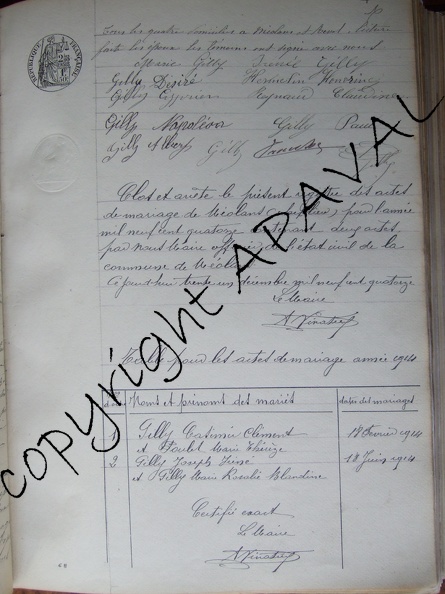 tous les quatre domiciliés à Méolans et dont lecture
faite les époux les témoins ont signé avec nous
Marie Gilly Irénée Gilly
Gilly Désiré Honoré
Gilly Cyprien Claudine
Gilly Napoléon Gilly Paul
Gilly Albert Gilly
Clos et arrêté le présent registre des actes
de mariage de Méolans pour l'année
mil neuf cent quatorze contenant deux actes
par nous Maire officier de l'état civil de la
commune de Méolans
Aujourd'hui trente un décembre mil neuf cent quatorze
Le Maire
Table pour les actes de mariage année 1914
Noms et prénoms des mariés dates des mariages
1 Gilly Casimir Clément
et Marie Thérèze
17 février 1914
2 Gilly Joseph Irénée
et Gilly Marie Rosalie Blandine
18 Juin 1914
Certifié exact
Le Maire
RÉPUBLIQUE FRANÇAISE
copyright APAVAL